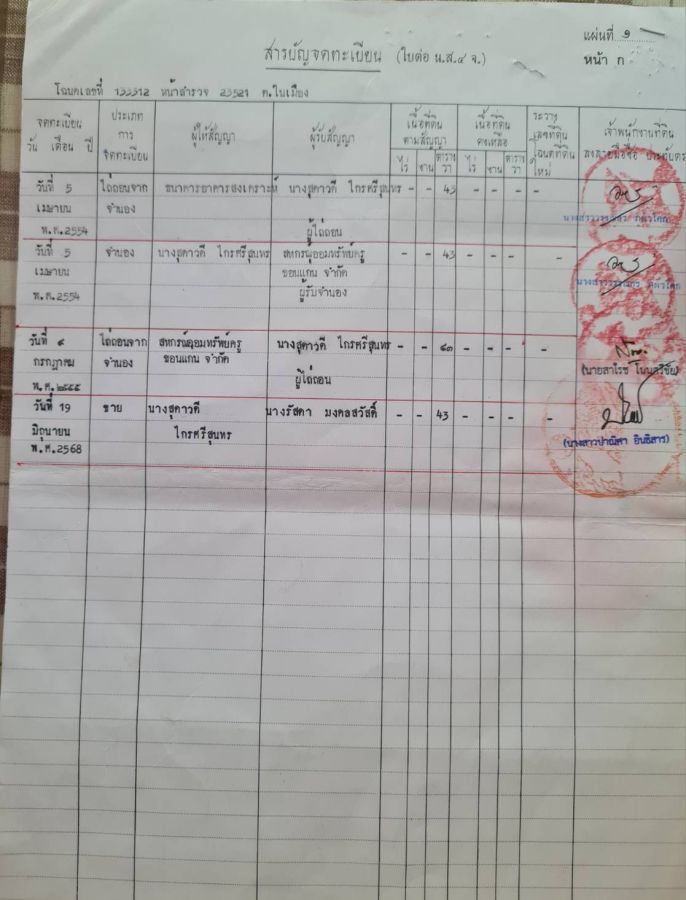 แผ่นที่ ๑
สารบัญจดทะเบียน (ใบต่อ น.ส.๔ จ.)
หน้า ก
โฉนดเลขที่ 133312 หน้าสำรวจ 23521 ต.ในเมือง
จดทะเบียน วัน เดือน ปี
ประเภทการจดทะเบียน
ผู้ให้สัญญา
ผู้รับสัญญา
เนื้อที่ดินตามสัญญา
ไร่ งาน ตารางวา
เนื้อที่ดินคงเหลือ
ไร่ งาน ตารางวา
ระวาง เลขที่ดิน โฉนดที่ดินใหม่
เจ้าพนักงานที่ดิน ลงลายมือชื่อ ประทับตรา
วันที่ 5 ไถ่ถอนจาก ธนาคารอาคารสงเคราะห์ นางสุดาวดี ไกรศรีสุนทร - - 43 - - - -
เมษายน จำนอง
พ.ศ.2554 ผู้ไถ่ถอน
วันที่ 5 จำนอง นางสุดาวดี ไกรศรีสุนทร สหกรณ์ออมทรัพย์ครู - - 43 - - - -
เมษายน ขอนแก่น จำกัด
พ.ศ.2554 ผู้รับจำนอง
วันที่ ๔ ไถ่ถอนจาก สหกรณ์ออมทรัพย์ครู นางสุดาวดี ไกรศรีสุนทร - - ๔๓ - - - -
กรกฎาคม จำนอง ขอนแก่น จำกัด
พ.ศ.๒๕๕๕ ผู้ไถ่ถอน
วันที่ 19 ขาย นางสุดาวดี นางรัสดา มงคลสวัสดิ์ - - 43 - - - -
มิถุนายน ไกรศรีสุนทร
พ.ศ.2568